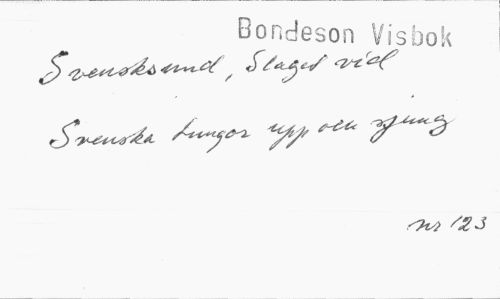 Bondeson Visbok
Svensksund, Slaget vid
Svenska tungor upp och sjung
nr 123